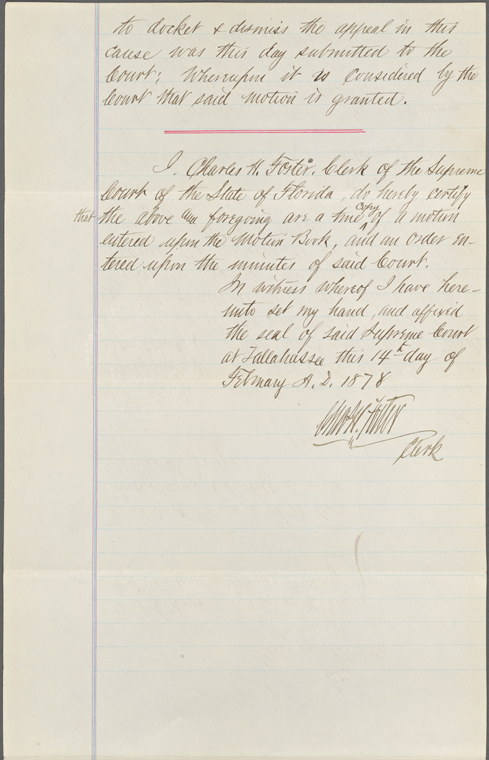 to docket & dismiss the appeal in this
cause was this day submitted to the
Court; Whereupon it is considered by the
Court that said motion is granted.
I, Charles H. Foster, Clerk of the Supreme
Court of the State of Florida, do hereby certify
that the above and foregoing are a true copy of a motion
entered upon the Motion Book, and an order en-
tered upon the minutes of said Court.
In witness whereof I have here-
unto set my hand, and affixed
the seal of said Supreme Court
at Tallahassee this 14th day of
February A. D. 1878
Chas. H. Foster
Clerk